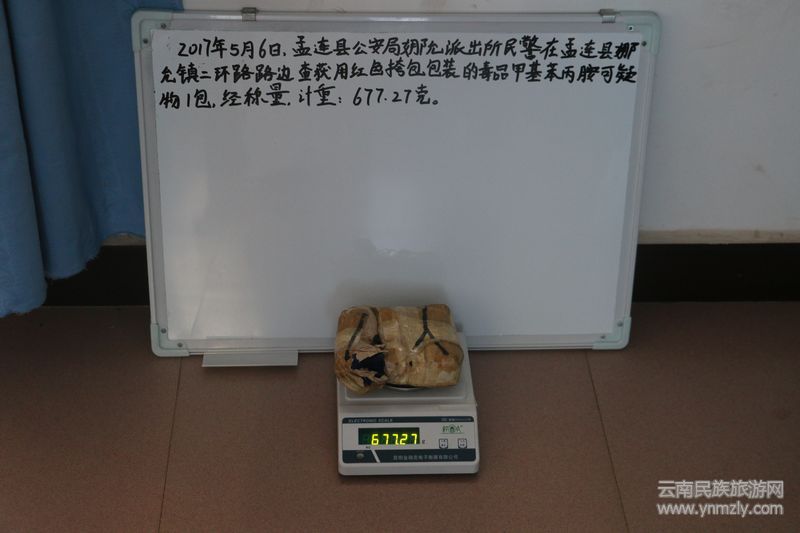 2017年5月6日,孟连县公安局娜允派出所民警在孟连县娜
允镇二环路路边查获用红色挎包包装的毒品甲基苯丙胺可疑
物1包,经称量,计重:677.27克。
ELECTRONIC SCALE
677.27
g
云南民族旅游网
www.ynmzly.com